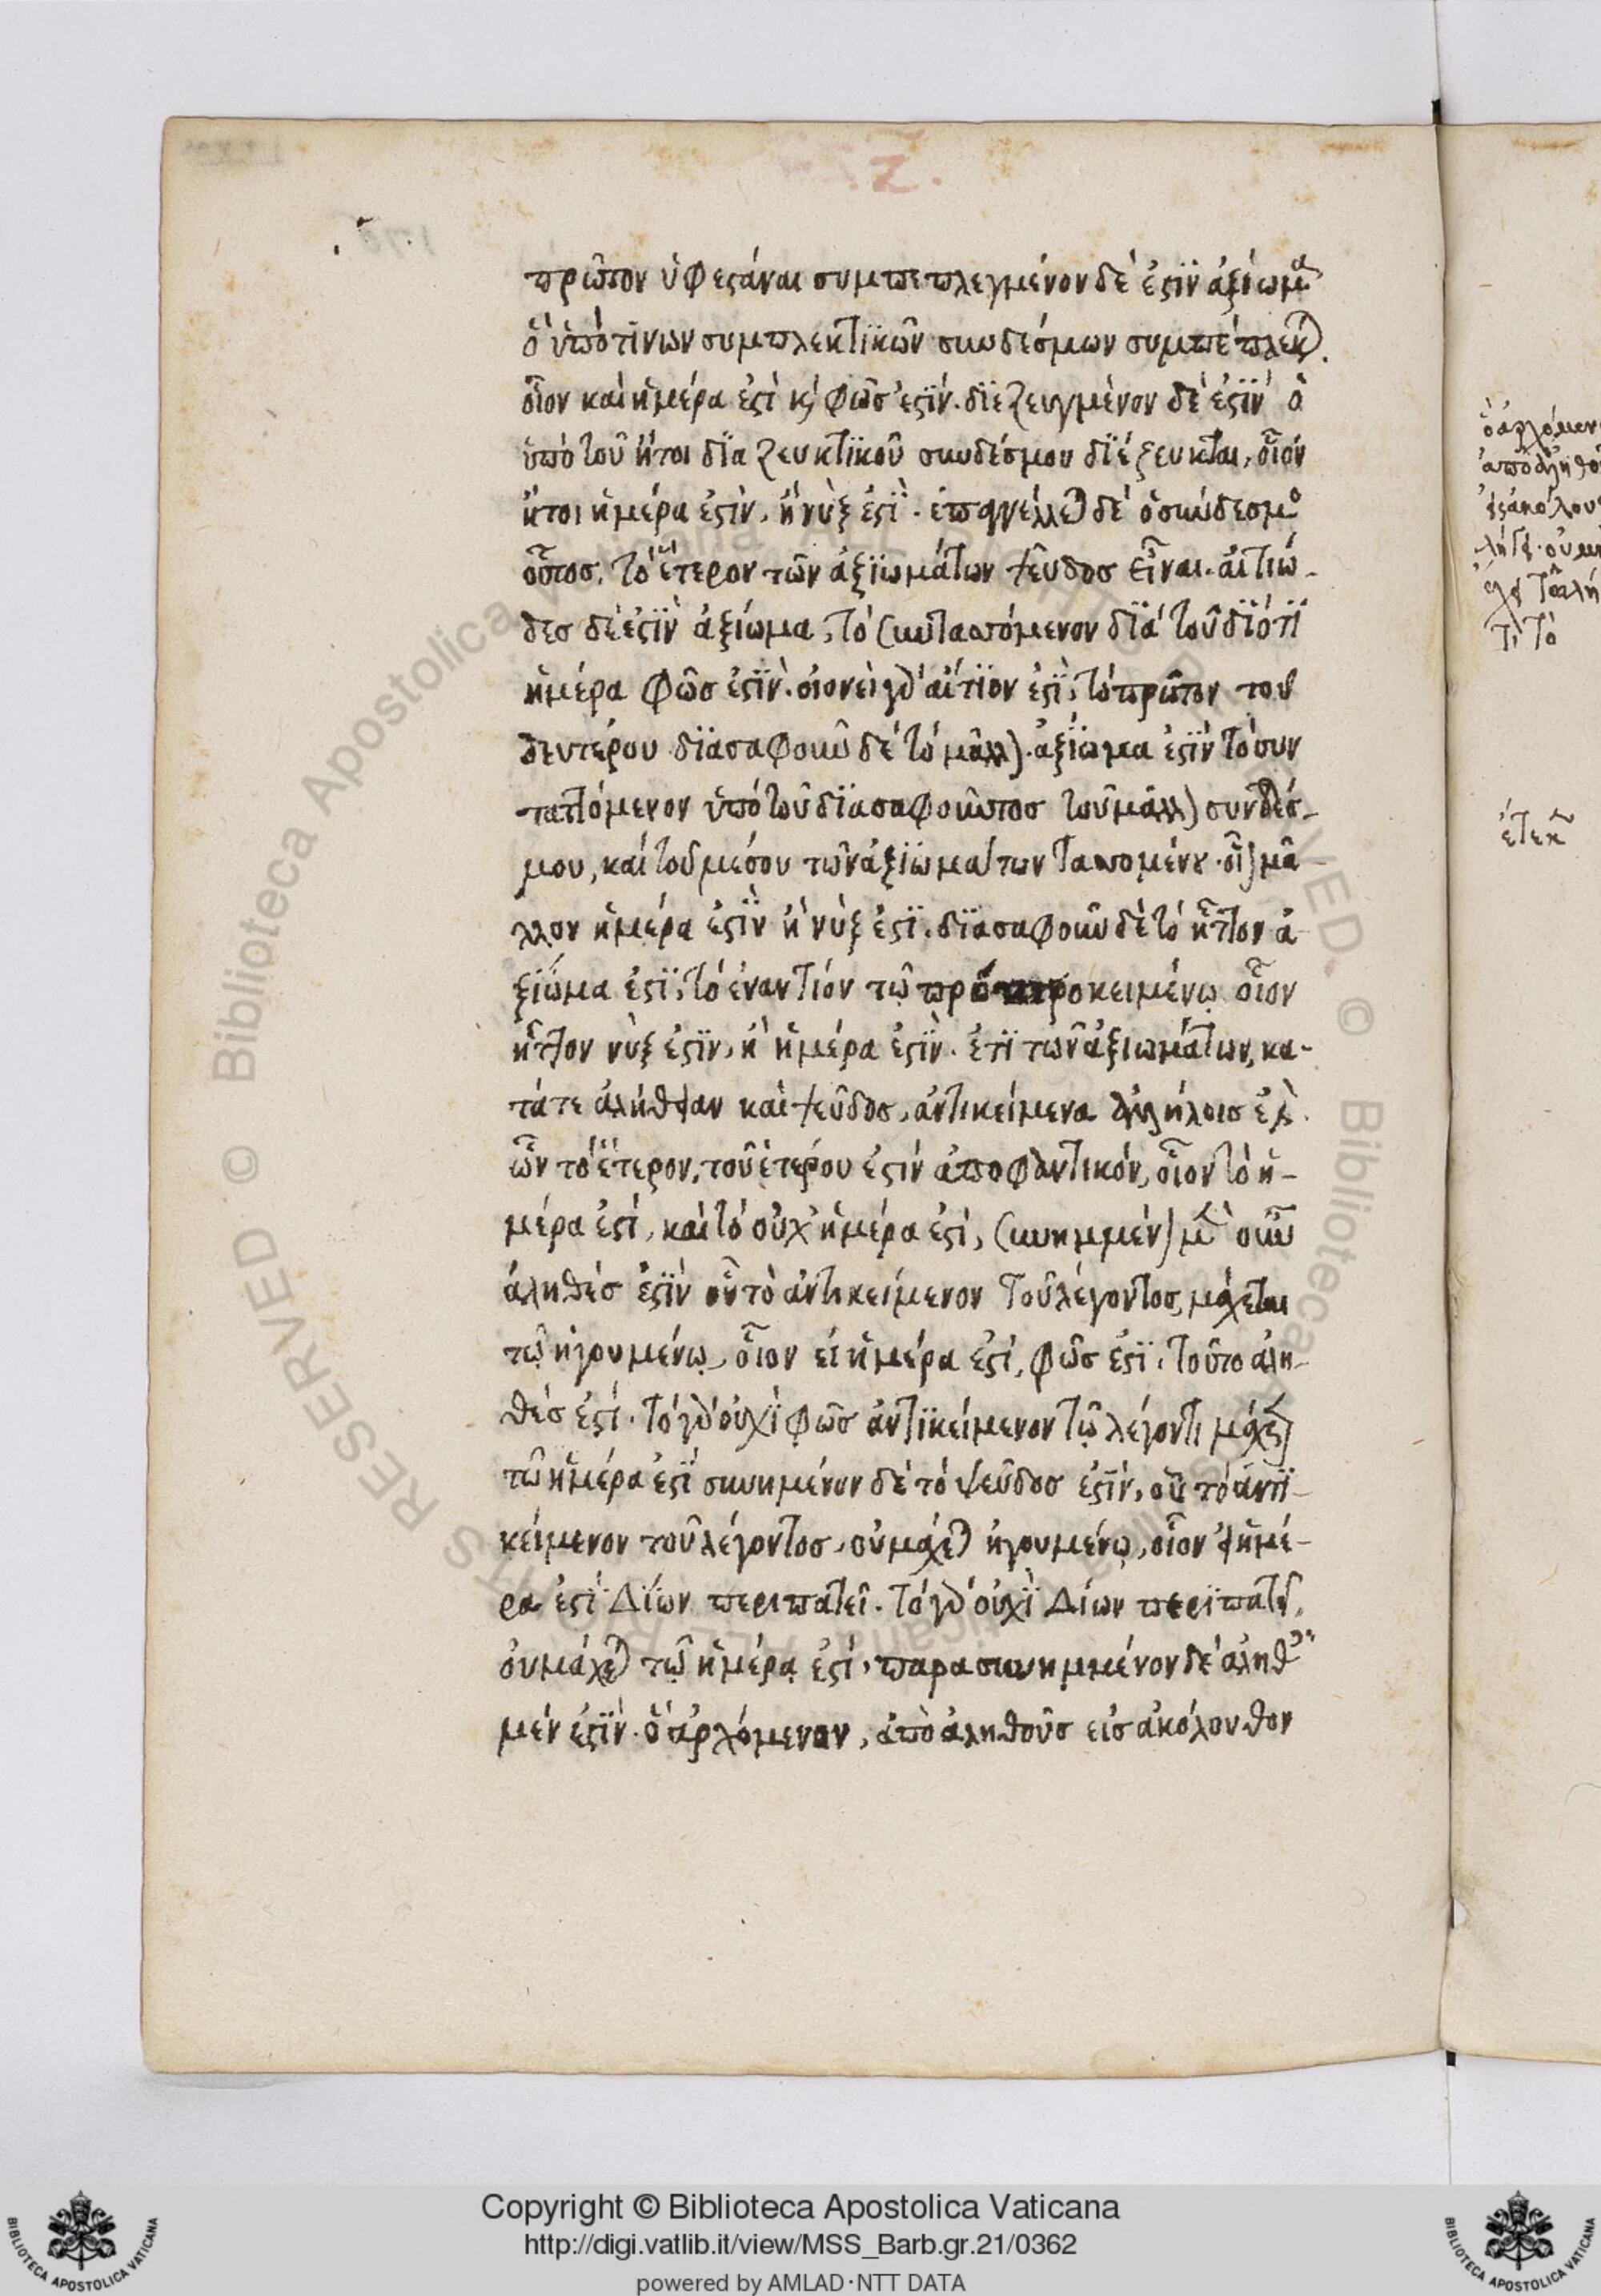 πρῶτον ὑφεστάναι συμπεπλεγμένον δέ ἐστϊν ἀξίωμα
ὃ ὑπότινων συμπλεκτϊκῶν συνδέσμων συμπέπλεκται.
οἷον καὶ ἡμέρα ἐστὶ κὶ φῶσ ἐστϊν. διεζευγμένον δέ ἐστϊν ὃ
ὑπὸ τοῦ ἤτοι δϊαζευκτϊκοῦ συνδέσμου δϊέζευκται, οἷόν
ἤτοι ἡμέρα ἐστὶν, ἢ νὺξ ἐστϊ. ἐπαγγέλλεται δέ ὁ σύνδεσμος
οὗτοσ, τὸ ἕτερον τῶν ἀξϊωμάτων ψεῦδοσ εἶναι. αἰτιώ-
δεσ δέ ἐστϊν ἀξίωμα, τὸ συνταττόμενον δϊὰ τοῦ δϊότϊ
ἡμέρα φῶσ ἐστϊν. οἱονεὶ γὰρ αἴτϊον ἐστϊ, τὸ πρῶτον τοῦ
δευτέρου δϊασαφοῦν δέ τὸ μᾶλλον. ἀξίωμα ἐστϊν τὸ συν
ταττόμενον ὑπὸ τοῦ δϊασαφοῦντοσ τοῦ μᾶλλον συνδέσ-
μου, καὶ τοῦ μέσου τῶν ἀξϊωμάτων ταττομένου. οἷον μᾶ-
λλον ἡμέρα ἐστϊν ἢ νὺξ ἐστϊ. δϊασαφοῦν δὲ τὸ ἧττον ἀ
ξίωμα ἐστϊ, τὸ ἐναντϊόν τῷ προκειμένῳ οἷον
ἧττον νὺξ ἐστϊν, ἢ ἡμέρα ἐστϊν. ἔτϊ τῶν ἀξιωμάτων, κα-
τά τε ἀλήθειαν καὶ ψεῦδοσ, ἀντικείμενα ἀλλήλοισ ἐστὶ.
ὧν τὸ ἕτερον, τοῦ ἑτέρου ἐστὶν ἀποφαντικόν, οἷον τὸ ἡ-
μέρα ἐστὶ, καὶ τὸ οὐχ' ἡμέρα ἐστὶ, συνημμένον μὲν οὖν
ἀληθέσ ἐστϊν οὗ τὸ ἀντικείμενον τοῦ λέγοντοσ, μάχεται
τῷ ἡγουμένῳ, οἷον εἰ ἡμέρα ἐστὶ, φῶσ ἐστϊ. τοῦτο ἀλη-
θέσ ἐστὶ. τὸ γὰρ οὐχὶ φῶσ ἀντϊκείμενον τῷ λέγοντι μάχεται
τῶ ἡμέρα ἐστϊ συνημένον δὲ τὸ ψεῦδοσ ἐστϊν, οὗ τὸ ἀντϊ-
κείμενον τοῦ λέγοντοσ, οὐ μάχεται ἡγουμένῳ, οἷον εἰ ἡμέ-
ρα ἐστϊ Δίων περιπατεῖ. τὸ γὰρ οὐχὶ Δίων περϊπατεῖ,
οὐ μάχεται τῷ ἡμέρα ἐστὶ, παρασυνημμένον δέ ἀληθὲσ
μέν ἐστϊν. ὃ ἀρχόμενον, ἀπὸ ἀληθοῦσ εἰσ ἀκόλουθον
Copyright © Biblioteca Apostolica Vaticana
http://digi.vatlib.it/view/MSS_Barb.gr.21/0362
powered by AMLAD·NTT DATA